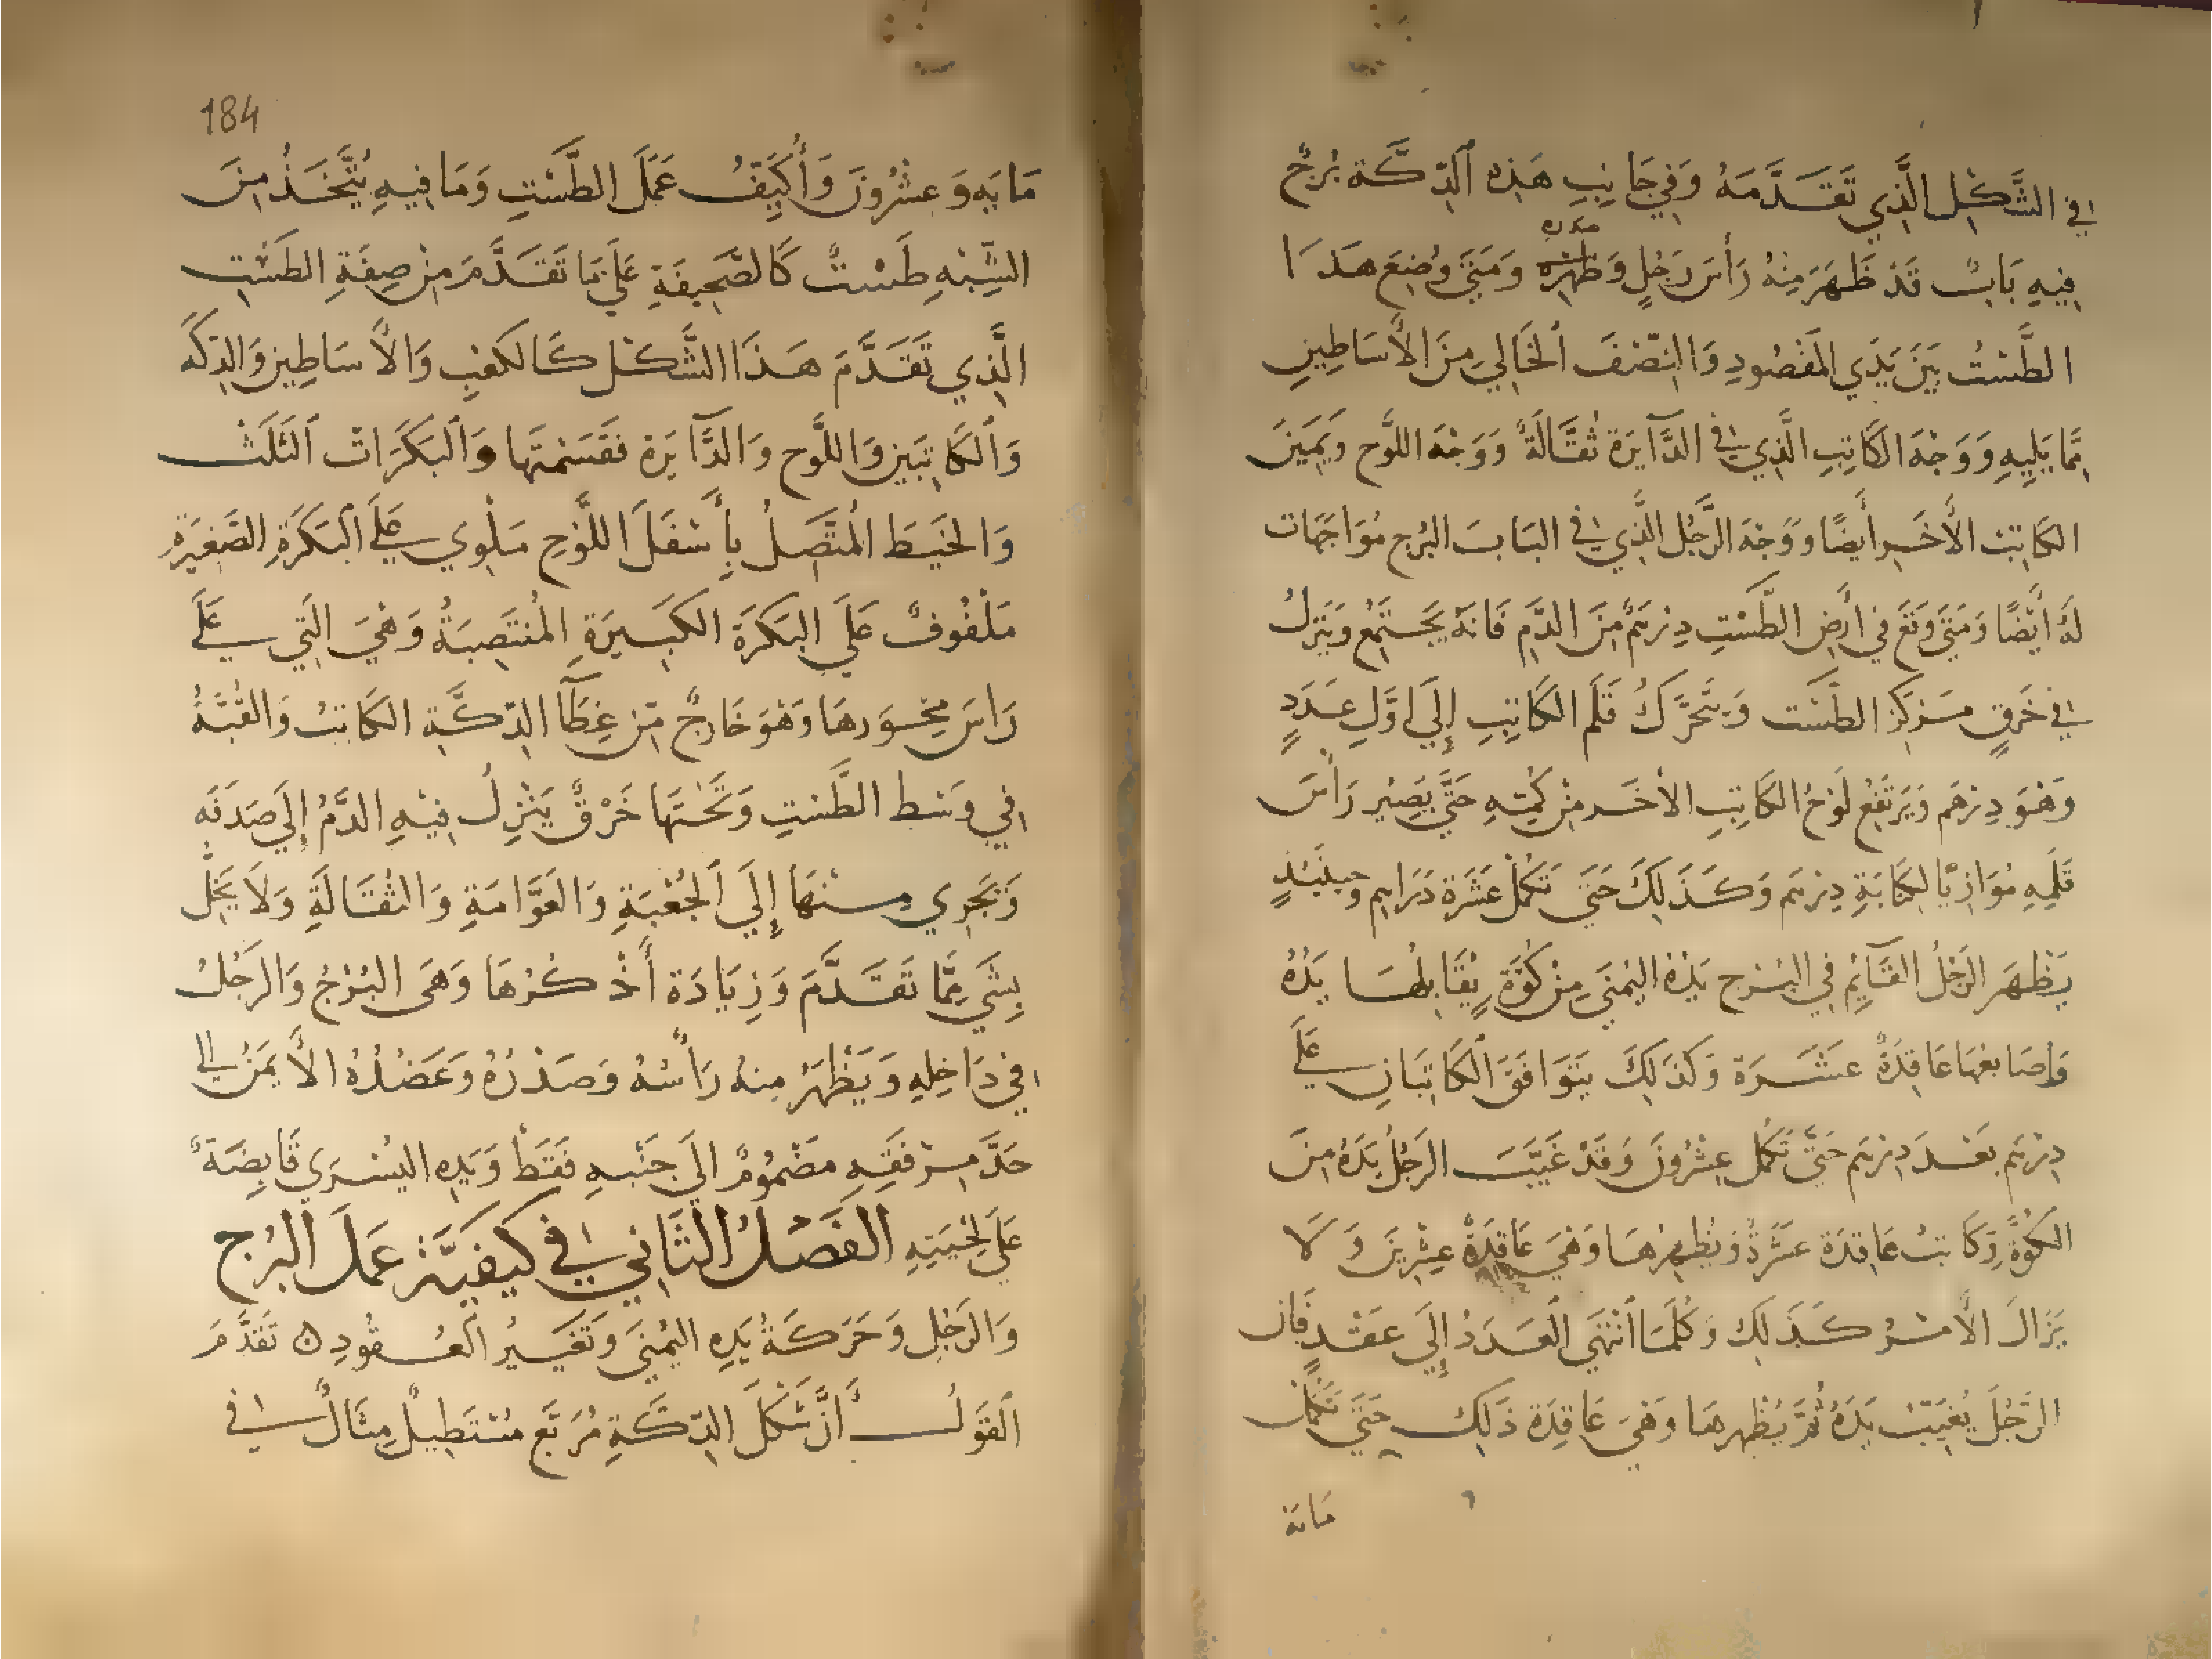 في الشَّكْلِ الَّذِي تَقَدَّمَهُ وَفِي جَانِبِ هَذِهِ الدِّكَّة بُرجٌ
صدره
فِيهِ بَابٌ قَدْ ظَهَرَ مِنْهُ رَأسُ رَجُلٍ وَظَهْرُهُ وَمَتَى وُضِعَ هَذَا
الطَّسْتُ بَيْنَ يَدَي المَفْصُودِ وَالنِّصْفَ الْخَالِي مِنَ الأَسَاطِينِ
مِمَّا يَلِيهِ وَوَجْهَ الكَاتِبِ الَّذِي فِي الدَّآيرَة ثُقَّالَةً وَوَجْهَ اللَّوْحِ وَيَمِينَ
الكَاتِبْ الأَخَرِ أَيضًا وَوَجْهَ الرَّجُلِ الَّذِي فِي البَابَ البُرج مُوَاجَهَات
لَهُ أَيْضًا وَمَتَى وَقَعَ فِي أَرضِ الطَّسْتِ دِرْهَمٌ مِنَ الدَّمِ فَانَهُ يَجْتَمِع وَيَنْزِلُ
فِي خَرقِ مَرْكَز الطَّسْت وَيَتَحَرَّكُ قَلَم الكَاتِبِ إِلَى اوَّلِ عَدَدٍ
وَهُوَ دِرْهَم وَيَرتَفِع لَوْحُ الكَاتِبِ الأخَر مِنْ كُمِّهِ حَتَّى يَصِير رَأسَ
قَلَمِهِ مُوَازِيًا لِكِتَابَةِ دِرْهَم وَكَذَلِكَ حَتَّى تَكْمُل عَشَرَة دَرَاهِم وَحِينَئِذٍ
يَظْهَر الرَجُلُ القَآيِم فِي البُرْج يَدْهُ اليُمنَى مِنْ كُوَّةٍ يُقَابِلُهَا يَدُهُ
وَاصَابعُهَا عَاقِدَةٌ عَشَرَة وَكَذَلِكَ يَتَوَافَقَ الكَاتِبَانِ عَلَى
دِرْهَم بَعْدَ دِرْهَم حَتَّى تَكْمُل عِشْرُونَ وَقَدْ غَيَّبَ الرَجُلُ يَدَهُ مِنَ
الكُوَّةِ وَكَانتْ عَاقِدَة عَشَرَةً وَيُظهِرُهَا وَهْيَ عَاقِدَةٌ عِشْرِينَ وَلَا
يَزَالَ الأَمْرُ كَذَلِك وَكُلَّمَا أنْتَهَى الْعَدَدُ إِلَى عَقْدٍ فَإِن
الرَّجُلَ يُغَيِّبْ يَدَهُ ثُمَّ يُظْهِرهَا وَهْيَ عَاقِدَة ذَلِك حَتَّى تَكْمُل
مَايَة
184
مَايَه وَعشْرُونَ وَأُكَيِّفُ عَمَلَ الطَّسْتِ وَمَا فِيهِ يُتَّخَذُ مِنَ
الشِّبْهِ طَسْتٌ كَالصَّحِيفَةِ عَلَى مَا تَقَدَّمَ مِنْ صِفَةِ الطَسْتِ
الَّذِي تَقَدَّمَ هَذَا الشَّكْل كَالكَعْبِ وَالأَسَاطِين وَالدِّكَه
وَالكَاتِبَين وَاللَّوح وَالدَّآيرَة فَقَسَمْتَهَا وَالبَكَرَات الثَلَثْ
وَالخَيطَ الْمُتَّصِلُ بِأَسْفَلَ اللَّوْح مَلْوِي عَلَى البَكَرَةِ الصَّغِيرَةِ
مَلْفُوفٌ عَلَى البَكَرَة الكَبِيرَةِ الْمُنْتَصِبَةُ وَهْيَ الَّتِي عَلَى
رَاسَ مِحْوَرهَا وَهُوَ خَارِجٌ مِّنْ غِطَآ الدِّكَّةِ الكَاتبْ وَالقُبَّةُ
فِي وَسْط الطَّسْتِ وَتَحْتَهَا خَرْقٌ يَنْزِلُ فِيْهِ الدَّمُ إِلَى صَدَفَه
وَيَجْرِي مِنْهَا إِلَى الْجُعْبَةِ وَالعَوَّامَةِ وَالثُقَّالَةِ وَلَا يُخِلُّ
بِشَيءٍ مِمَّا تَقَدَّمَ وَزِيَادَة أَذْكُرُهَا وَهْىَ البُرْجُ وَالرَجُلُ
فِي دَاخِلِهِ وَيَظْهَرُ مِنهُ رَأْسُهُ وَصَدْرُهُ وَعَضُدُهُ الأَيمَنُ إلى
حَدَّ مِرْفَقِهِ مَضْمُومٌ الَى جَنْبِهِ فَقَطْ وَيَدِهِ اليُسْرَى قَابِضَةً
عَلَى لِحْيَتِهِ الفَصْلُ الثَّانِي فِي كَيفيَّة عَمَلَ البُرج
وَالرَجُلِ وَحَرَكَةُ يَدِهِ اليُمْنَى وَتَغْيِيْرُ الْعُقُودِ ه تَقَدَّمَ
القَولُ أَنَّ شَكْلَ الدِّكَّةِ مُرَبَّع مُسْتَطِيلٌ مِثَالٌ فِي